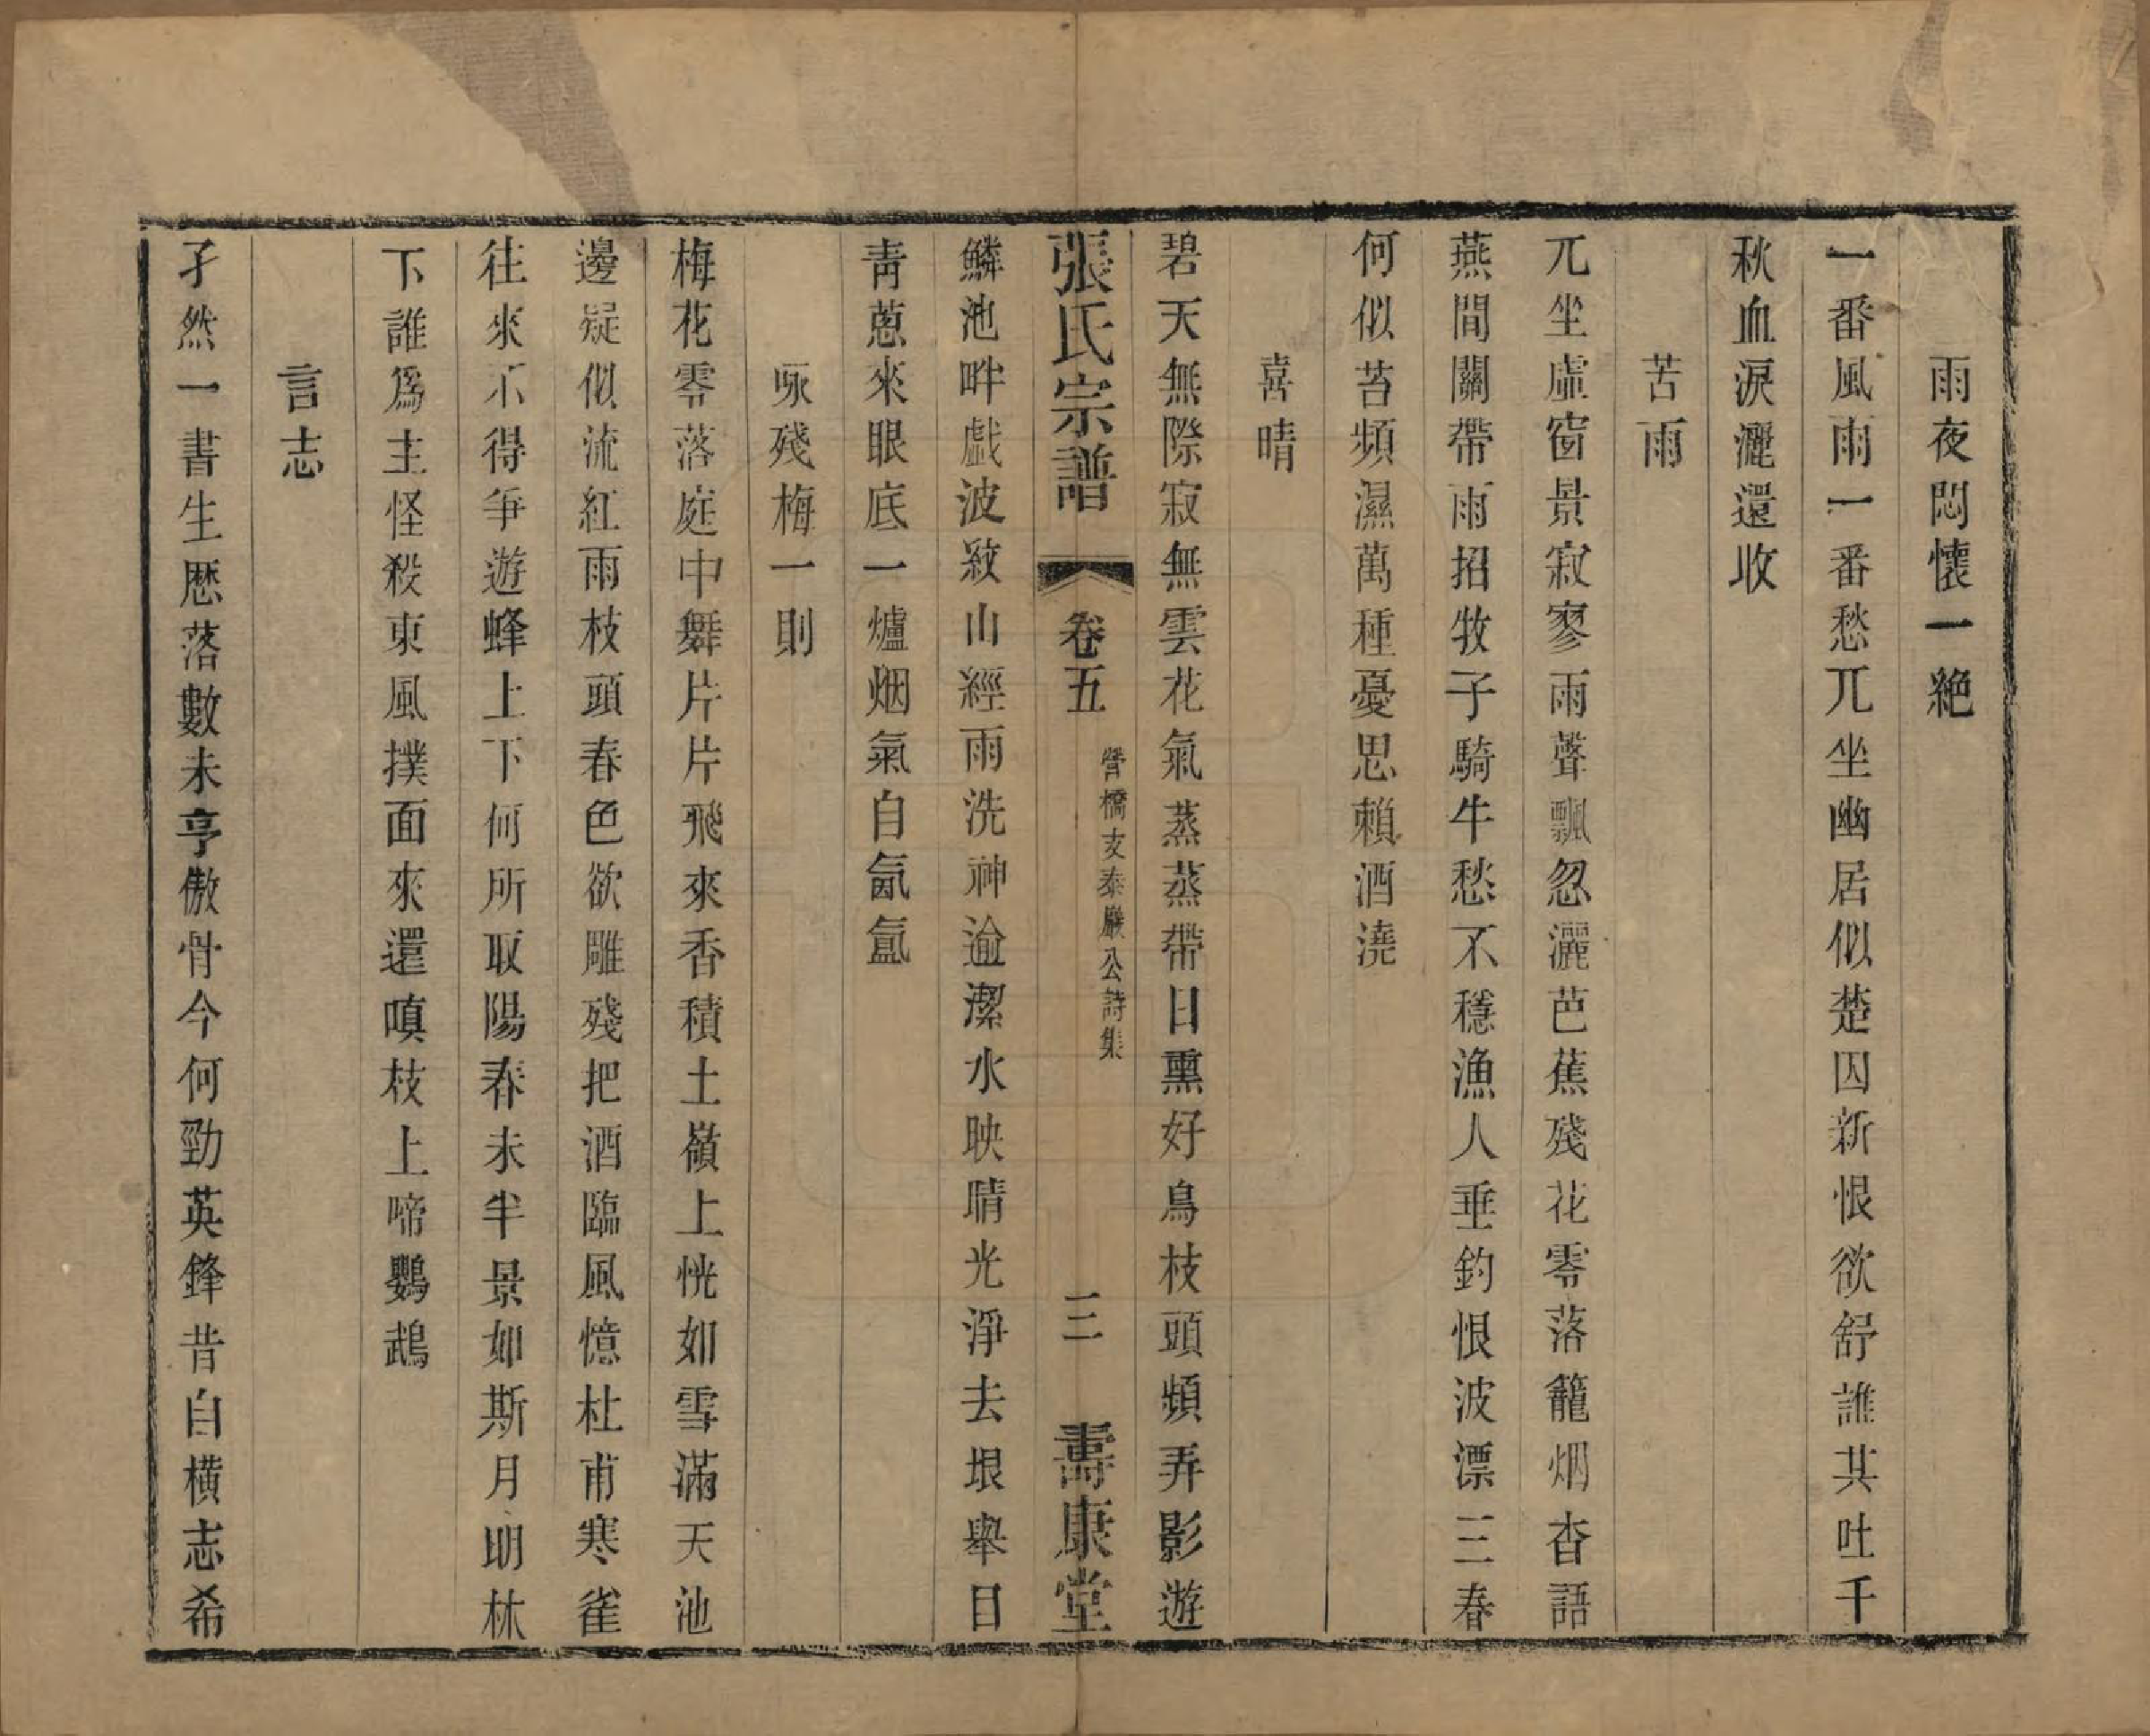 雨夜悶懷一絶
一番風雨一番愁兀坐幽居似楚囚新恨欲舒誰共吐千
秋血淚灑還收
苦雨
兀坐虛窗景寂寥雨聲飄忽灑芭蕉殘花零落籠烟杳語
燕間關帶雨招牧子騎牛愁不穩漁人垂釣恨波漂三春
何似苔頻濕萬種憂思賴酒澆
喜晴
碧天無際寂無雲花氣蒸蒸帶日熏好鳥枝頭頻弄影遊
張氏宗譜 卷五 營橋支泰巖公詩集 三 壽康堂
鱗池畔戲波紋山經雨洗神逾潔水映晴光淨去垠舉目
靑蔥來眼底一爐烟氣自氤氳
咏殘梅一則
梅花零落庭中舞片片飛來香積土嶺上恍如雪滿天池
邊疑似流紅雨枝頭春色欲雕殘把酒臨風憶杜甫寒雀
往來不得爭遊蜂上下何所取陽春未半景如斯月明林
下誰爲主怪殺東風撲面來還嗔枝上啼鸚鵡
言志
孑然一書生歷落數未亨傲骨今何勁英鋒昔自横志希